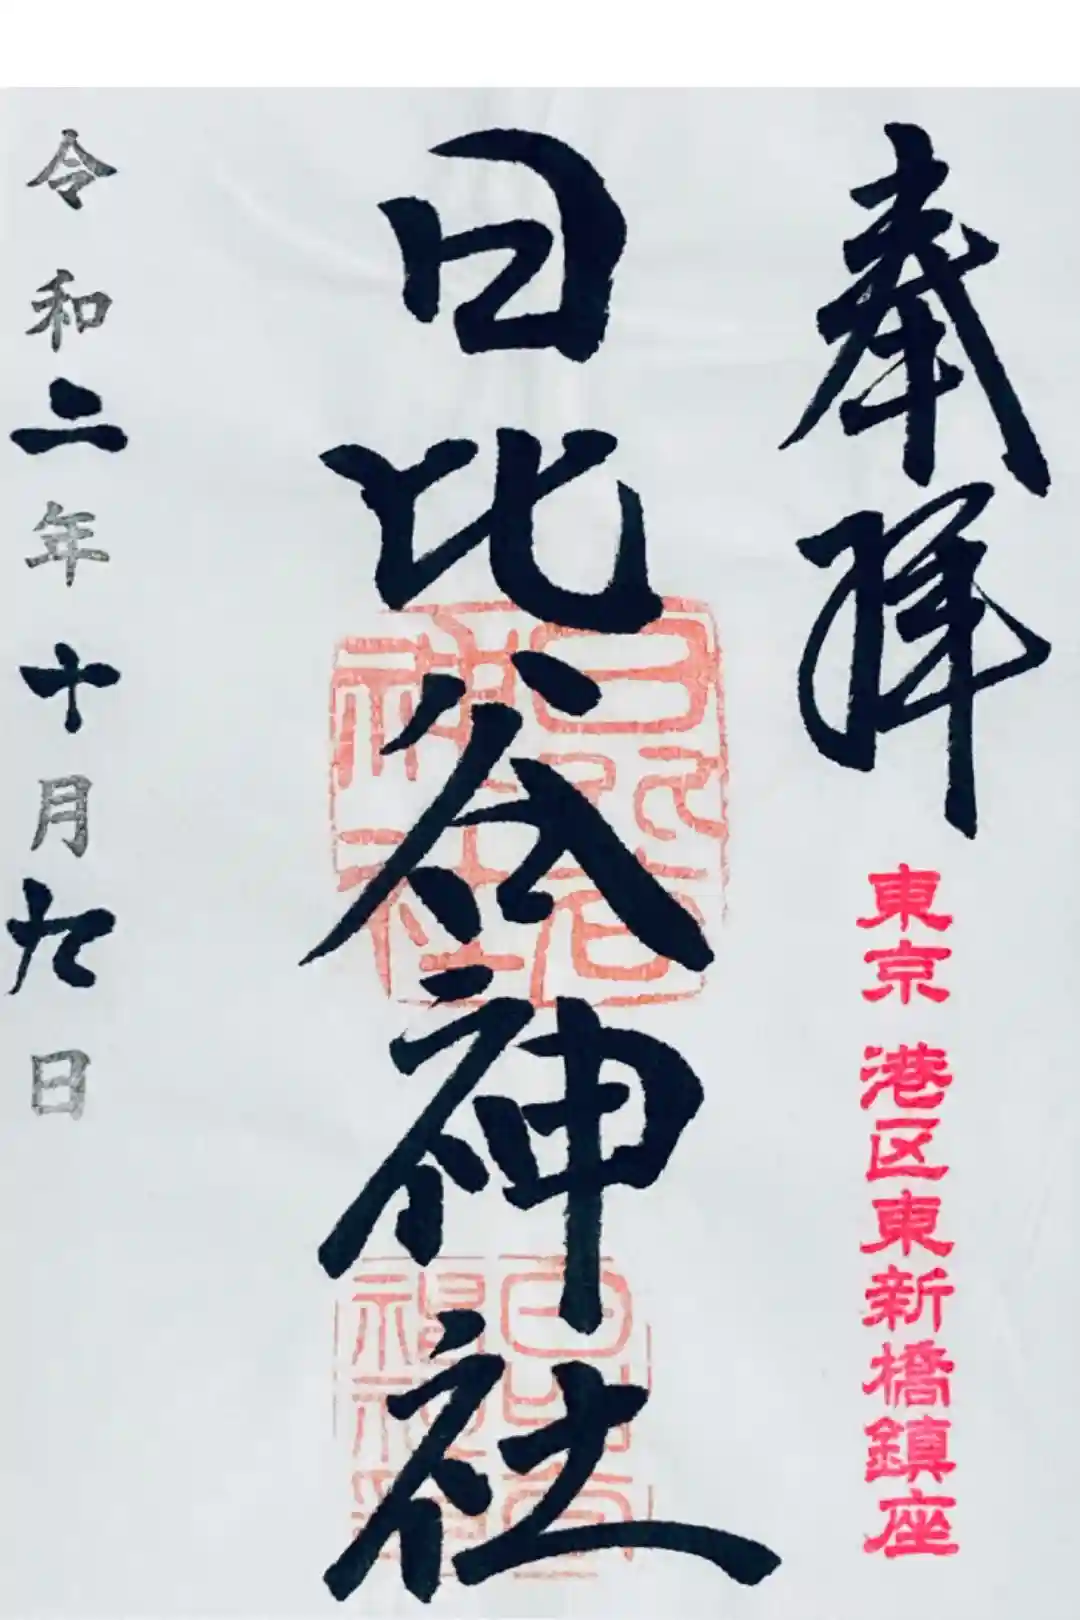 奉拝
東京 港区東新橋鎮座
日比谷神社
日比谷神社
令和二年十月九日